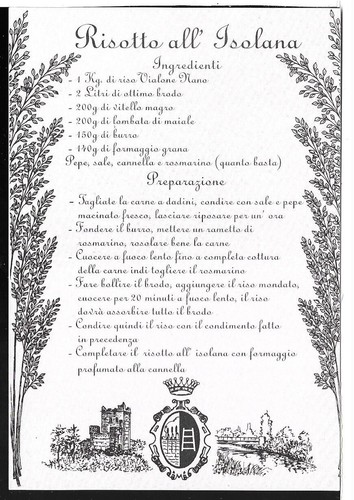 Risotto all' Isolana
Ingredienti
- 1 Kg. di riso Vialone Nano
- 2 Litri di ottimo brodo
- 200g di vitello magro
- 200g di lombata di maiale
- 150g di burro
- 140g di formaggio grana
Pepe, sale, cannella e rosmarino (quanto basta)
Preparazione
- Tagliate la carne a dadini, condire con sale e pepe
macinato fresco, lasciare riposare per un' ora
- Fondere il burro, mettere un rametto di
rosmarino, rosolare bene la carne
- Cuocere a fuoco lento fino a completa cottura
della carne indi togliere il rosmarino
- Fare bollire il brodo, aggiungere il riso mondato,
cuocere per 20 minuti a fuoco lento, il riso
dovrà assorbire tutto il brodo
- Condire quindi il riso con il condimento fatto
in precedenza
- Completare il risotto all' isolana con formaggio
profumato alla cannella